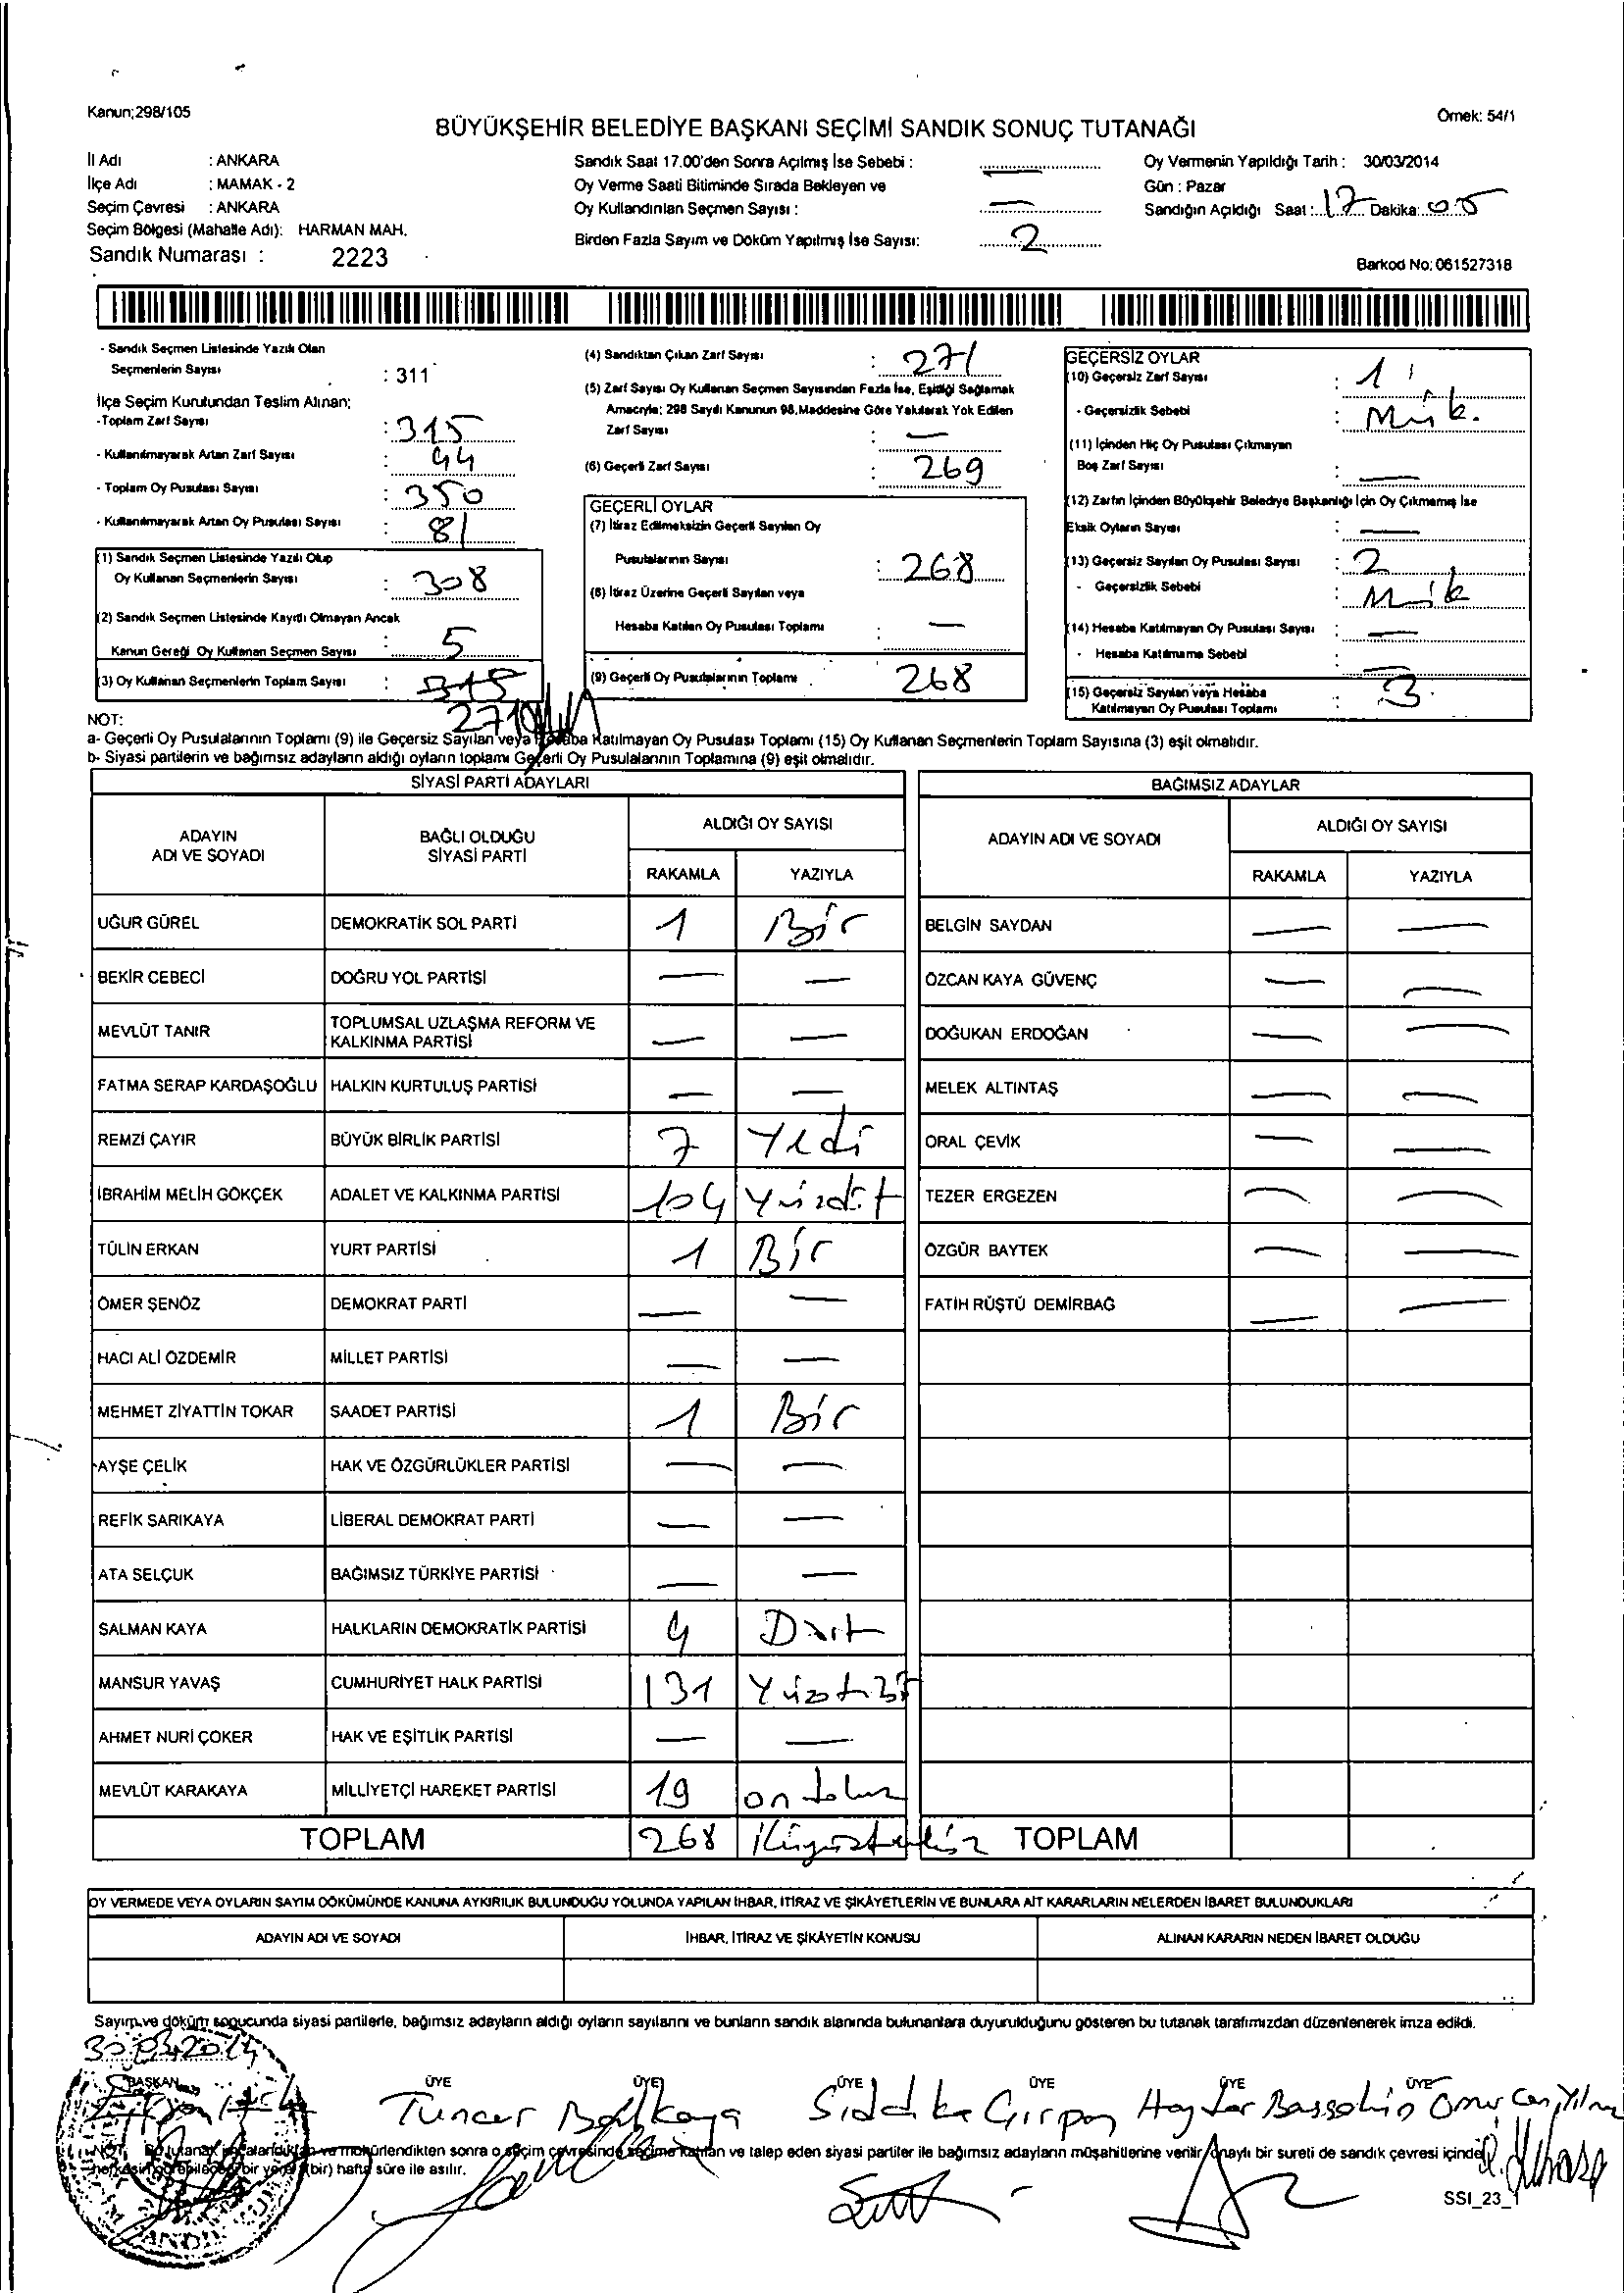 Kanun;298/105
Örnek: 54/1
BÜYÜKŞEHİR BELEDİYE BAŞKANI SEÇİMİ SANDIK SONUÇ TUTANAĞI
İl Adı : ANKARA
İlçe Adı : MAMAK - 2
Seçim Çevresi : ANKARA
Seçim Bölgesi (Mahalle Adı): HARMAN MAH.
Sandık Numarası : 2223
Sandık Saat 17.00'den Sonra Açılmış İse Sebebi : —
Oy Verme Saati Bitiminde Sırada Bekleyen ve
Oy Kullandırılan Seçmen Sayısı : —
Birden Fazla Sayım ve Döküm Yapılmış İse Sayısı: 2
Oy Vermenin Yapıldığı Tarih : 30/03/2014
Gün : Pazar
Sandığın Açıldığı Saat : 17 Dakika: 05
Barkod No: 061527318
- Sandık Seçmen Listesinde Yazılı Olan
Seçmenlerin Sayısı : 311
İlçe Seçim Kurulundan Teslim Alınan;
-Toplam Zarf Sayısı : 315
- Kullanılmayarak Artan Zarf Sayısı : 44
- Toplam Oy Pusulası Sayısı : 350
- Kullanılmayarak Artan Oy Pusulası Sayısı : 81
(1) Sandık Seçmen Listesinde Yazılı Olup
Oy Kullanan Seçmenlerin Sayısı : 308
(2) Sandık Seçmen Listesinde Kayıtlı Olmayan Ancak
Kanun Gereği Oy Kullanan Seçmen Sayısı : 5
(3) Oy Kullanan Seçmenlerin Toplam Sayısı : 315
271
(4) Sandıktan Çıkan Zarf Sayısı : 271
(5) Zarf Sayısı Oy Kullanan Seçmen Sayısından Fazla İse, Eşitliği Sağlamak
Amacıyla; 298 Sayılı Kanunun 98.Maddesine Göre Yakılarak Yok Edilen
Zarf Sayısı : —
(6) Geçerli Zarf Sayısı : 269
GEÇERLİ OYLAR
(7) İtiraz Edilmeksizin Geçerli Sayılan Oy
Pusulalarının Sayısı : 268
(8) İtiraz Üzerine Geçerli Sayılan veya
Hesaba Katılan Oy Pusulası Toplamı : —
(9) Geçerli Oy Pusulalarının Toplamı : 268
GEÇERSİZ OYLAR
(10) Geçersiz Zarf Sayısı : 1
- Geçersizlik Sebebi : Müh.
(11) İçinden Hiç Oy Pusulası Çıkmayan
Boş Zarf Sayısı : —
(12) Zarfın İçinden Büyükşehir Belediye Başkanlığı İçin Oy Çıkmamış İse
Eksik Oyların Sayısı : —
(13) Geçersiz Sayılan Oy Pusulası Sayısı : 2
- Geçersizlik Sebebi : Müh
(14) Hesaba Katılmayan Oy Pusulası Sayısı : —
- Hesaba Katılmama Sebebi : —
(15) Geçersiz Sayılan veya Hesaba
Katılmayan Oy Pusulası Toplamı : 3
NOT:
a- Geçerli Oy Pusulalarının Toplamı (9) ile Geçersiz Sayılan veya Hesaba Katılmayan Oy Pusulası Toplamı (15) Oy Kullanan Seçmenlerin Toplam Sayısına (3) eşit olmalıdır.
b- Siyasi partilerin ve bağımsız adayların aldığı oyların toplamı Geçerli Oy Pusulalarının Toplamına (9) eşit olmalıdır.
SİYASİ PARTİ ADAYLARI
ADAYIN ADI VE SOYADI BAĞLI OLDUĞU SİYASİ PARTİ ALDIĞI OY SAYISI
RAKAMLA YAZIYLA
UĞUR GÜREL DEMOKRATİK SOL PARTİ 1 Bir
BEKİR CEBECİ DOĞRU YOL PARTİSİ — —
MEVLÜT TANIR TOPLUMSAL UZLAŞMA REFORM VE KALKINMA PARTİSİ — —
FATMA SERAP KARDAŞOĞLU HALKIN KURTULUŞ PARTİSİ — —
REMZİ ÇAYIR BÜYÜK BİRLİK PARTİSİ 7 Yedi
İBRAHİM MELİH GÖKÇEK ADALET VE KALKINMA PARTİSİ 104 Yüzdört
TÜLİN ERKAN YURT PARTİSİ 1 Bir
ÖMER ŞENÖZ DEMOKRAT PARTİ — —
HACI ALİ ÖZDEMİR MİLLET PARTİSİ — —
MEHMET ZİYATTİN TOKAR SAADET PARTİSİ 1 Bir
AYŞE ÇELİK HAK VE ÖZGÜRLÜKLER PARTİSİ — —
REFİK SARIKAYA LİBERAL DEMOKRAT PARTİ — —
ATA SELÇUK BAĞIMSIZ TÜRKİYE PARTİSİ — —
SALMAN KAYA HALKLARIN DEMOKRATİK PARTİSİ 4 Dört
MANSUR YAVAŞ CUMHURİYET HALK PARTİSİ 131
AHMET NURİ ÇOKER HAK VE EŞİTLİK PARTİSİ — —
MEVLÜT KARAKAYA MİLLİYETÇİ HAREKET PARTİSİ 19 on dokuz
TOPLAM 268
BAĞIMSIZ ADAYLAR
ADAYIN ADI VE SOYADI ALDIĞI OY SAYISI
RAKAMLA YAZIYLA
BELGİN SAYDAN — —
ÖZCAN KAYA GÜVENÇ — —
DOĞUKAN ERDOĞAN — —
MELEK ALTINTAŞ — —
ORAL ÇEVİK — —
TEZER ERGEZEN — —
ÖZGÜR BAYTEK — —
FATİH RÜŞTÜ DEMİRBAĞ — —
TOPLAM
OY VERMEDE VEYA OYLARIN SAYIM DÖKÜMÜNDE KANUNA AYKIRILIK BULUNDUĞU YOLUNDA YAPILAN İHBAR, İTİRAZ VE ŞİKÂYETLERİN VE BUNLARA AİT KARARLARIN NELERDEN İBARET BULUNDUKLARI
ADAYIN ADI VE SOYADI İHBAR, İTİRAZ VE ŞİKÂYETİN KONUSU ALINAN KARARIN NEDEN İBARET OLDUĞU
Sayım ve döküm sonucunda siyasi partilerle, bağımsız adayların aldığı oyların sayılarını ve bunların sandık alanında bulunanlara duyurulduğunu gösteren bu tutanak tarafımızdan düzenlenerek imza edildi.
30.03.2014
BAŞKAN ÜYE ÜYE ÜYE ÜYE ÜYE ÜYE
Tuncer Balkaya Sıddıka Girpan Haydar Başşahin Ömür Can Yılmaz
NOT: Bu tutanak imzalandıktan ve mühürlendikten sonra o seçim çevresinde seçime katılan ve talep eden siyasi partiler ile bağımsız adayların müşahitlerine verilir onaylı bir sureti de sandık çevresi içinde
herkesin görebileceği bir yere (bir) hafta süre ile asılır.
SSI_23_1